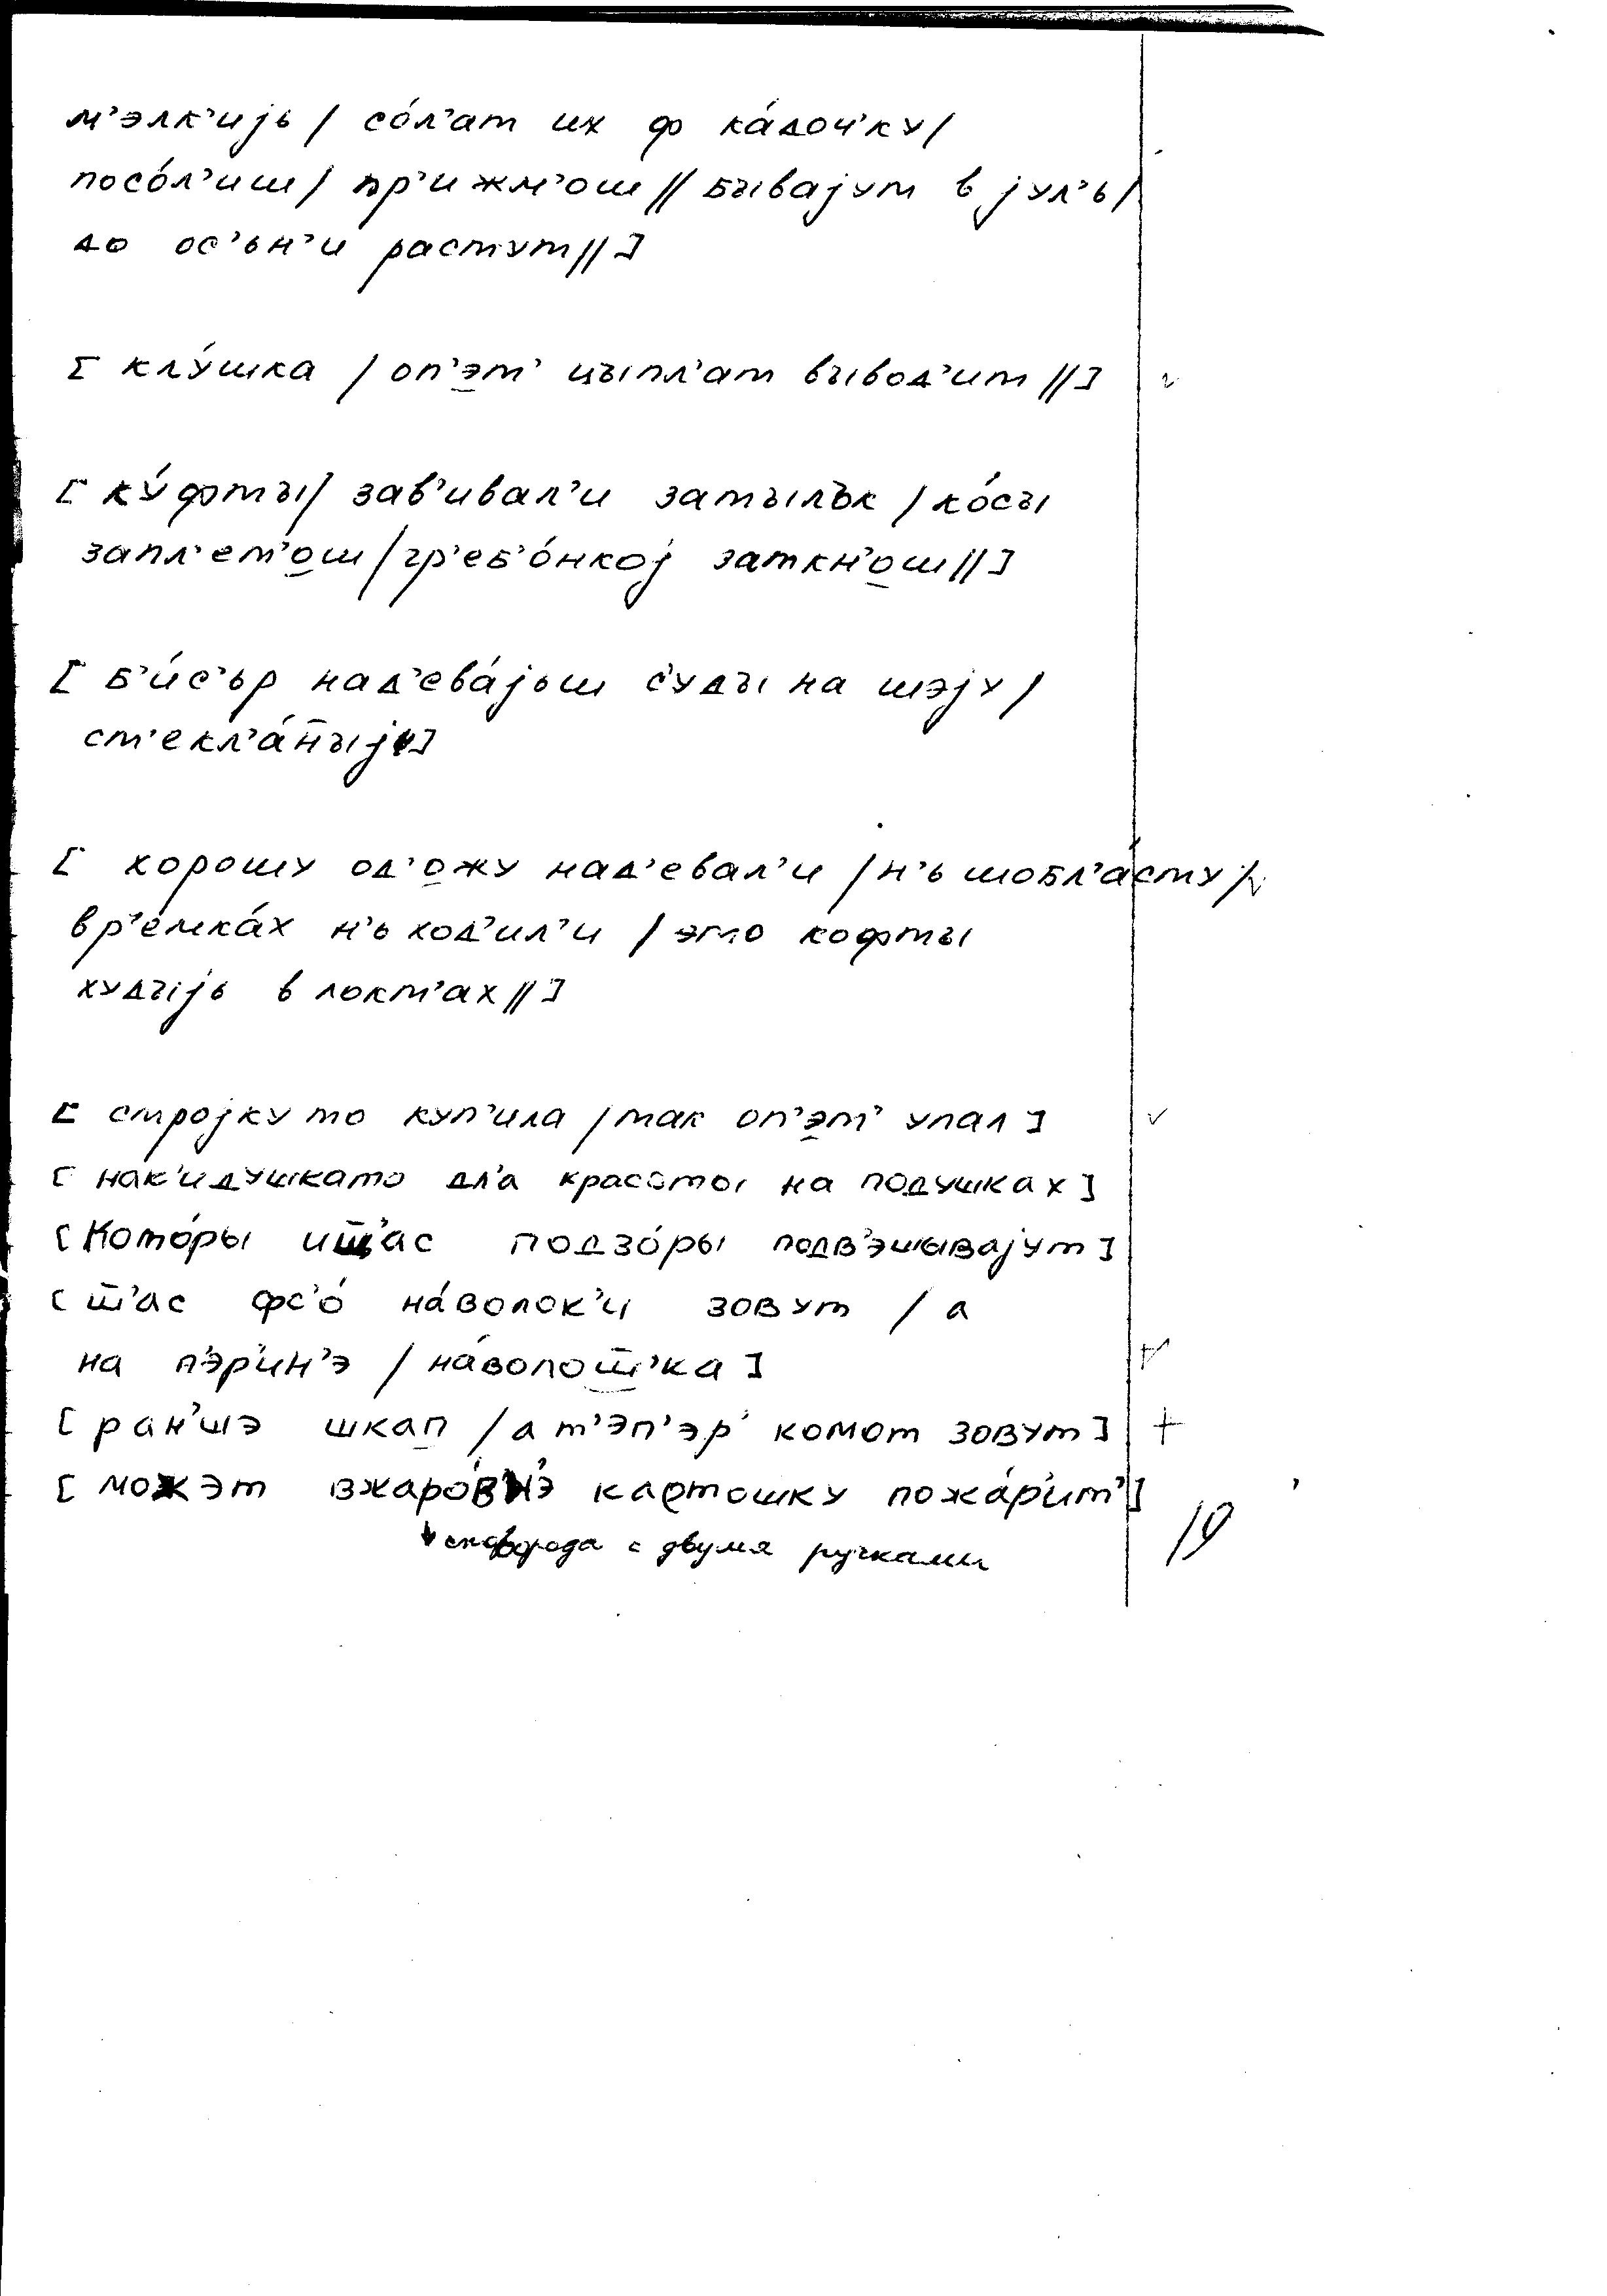 м’элк’ијь / со́л’ат их ф ка́доч’ку /
посо́л’иш / пр’ижм’ош // бывајут в јул’ь /
до ос’ьн’и растут // ]
[ клу́шка / оп’эт’ цыпл’ат вывод’ит // ]
[ ку́фты / зав’ивал’и затылък / ко́сы
запл’ет’ош / гр’еб’о́нкој заткн’ош // ]
[ б’и́с’ър над’ева́јьш с’уды на шэју /
ст’екл’а́н̄ыј ]
[ хорошу од’ожу над’евал’и / н’ь шобл’а́сту /
вр’емка́х н’ь ход’ил’и / это кофты
худыјь в локт’ах // ]
[ стројку то куп’ила / так оп’эт’ упал ]
[ нак’идушкато дл’а красоты на подушках ]
[ Кото́ры иш̄’ас подзо́ры подв’эшывајут ]
[ ш̄’ас фс’о́ на́волок’и зовут / а
на п’эр’ин’э / на́волош̄’ка ]
[ ран’шэ шкап / а т’эп’эр’ комот зовут ]
[можэт вжаро́в’н’э картошку пожа́р’ит’]
сковорода с двумя ручками
19